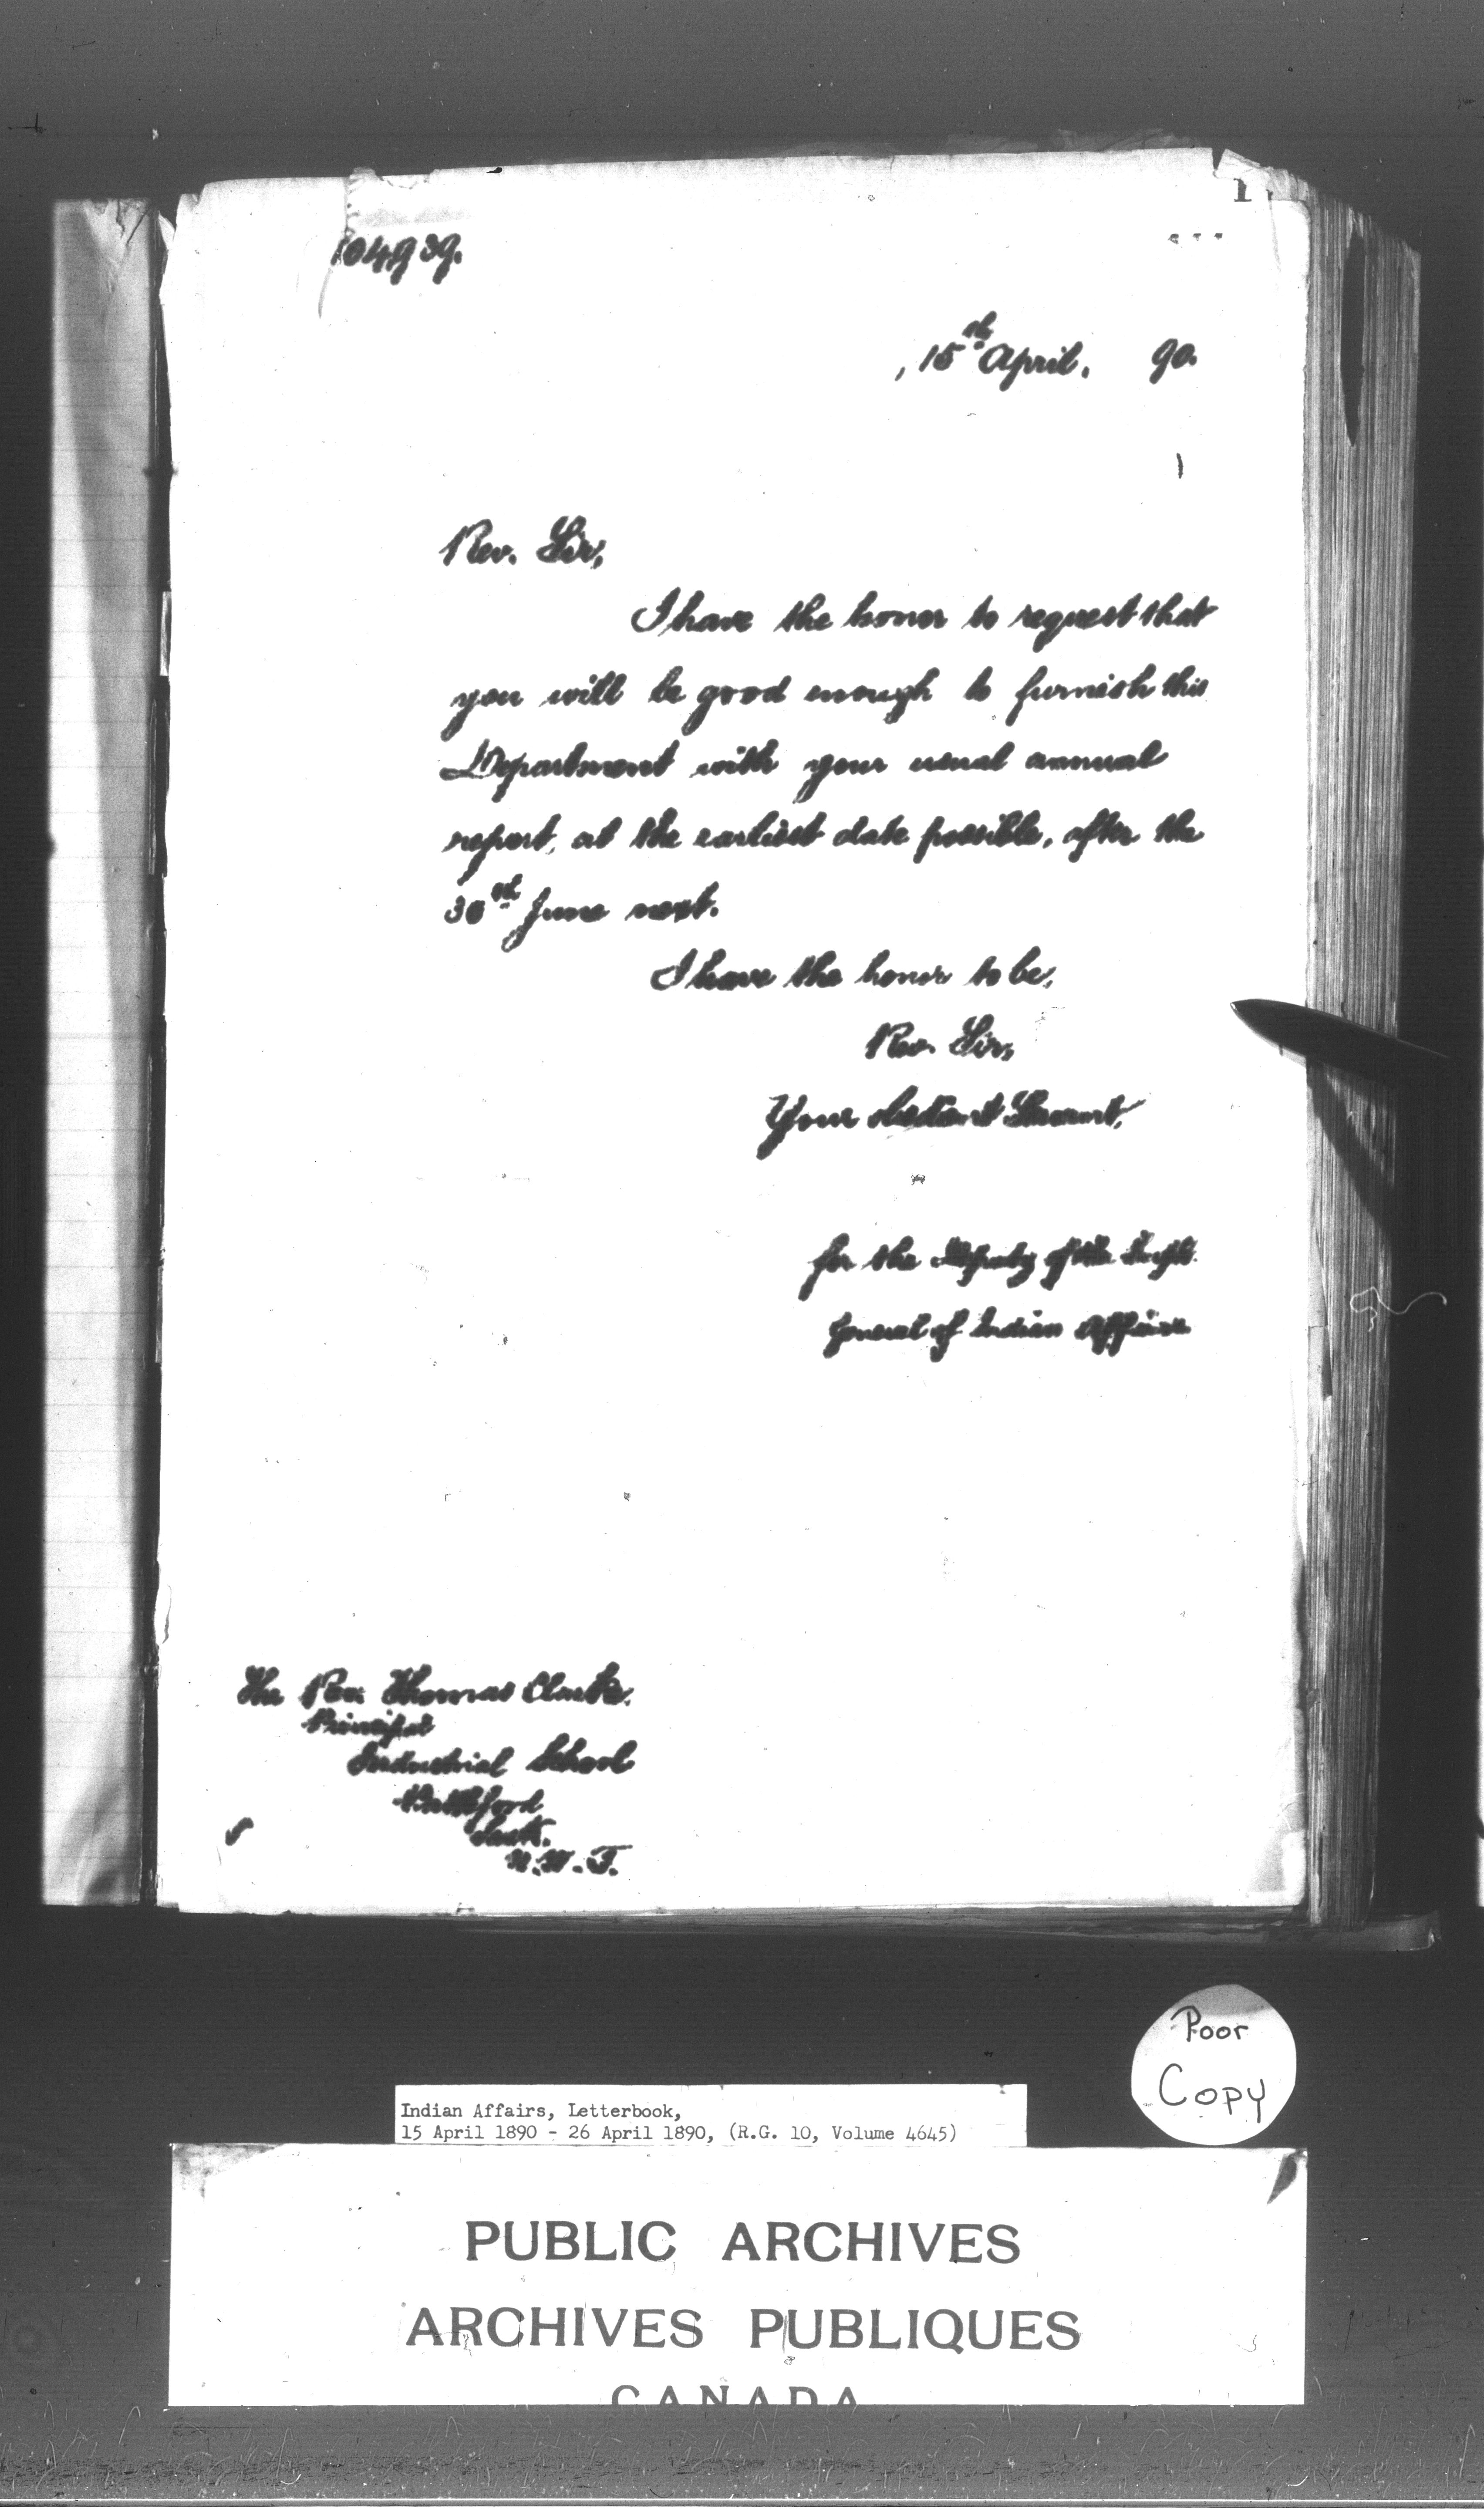 1
104939.
, 15th April. 90.
Rev. Sir,
I have the honor to request that
you will be good enough to furnish this
Department with your usual annual
report, at the earliest date possible, after the
30th June next.
I have the honor to be,
Rev. Sir,
Your obedient Servant,
for the Deputy of the Supt.
General of Indian Affairs
The Rev. Thomas Clarke.
Principal
Industrial School
Battleford
Sask.
N.W.T.
Poor
Copy
Indian Affairs, Letterbook,
15 April 1890 - 26 April 1890, (R.G. 10, Volume 4645)
PUBLIC ARCHIVES
ARCHIVES PUBLIQUES
CANADA